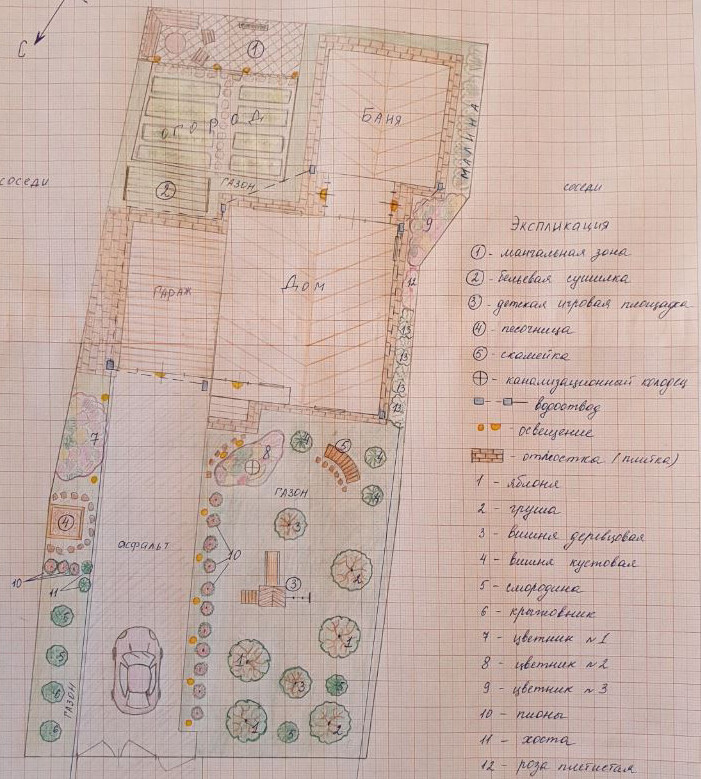 С
1
ОГОРОД
БАНЯ
МАЛИНА
соседи
2
ГАЗОН
9
соседи
ГАРАЖ
ДОМ
12
13
13
13
12
7
8
4
5
4
4
ГАЗОН
4
3
2
АСФАЛЬТ
10
10
11
3
5
1
1
5
3
4
6
ГАЗОН
6
2
5
2
Экспликация
1 - мангальная зона
2 - бельевая сушилка
3 - детская игровая площадка
4 - песочница
5 - скамейка
- канализационный колодец
- водоотвод
- освещение
- отмостка (плитка)
1 - яблоня
2 - груша
3 - вишня деревцовая
4 - вишня кустовая
5 - смородина
6 - крыжовник
7 - цветник №1
8 - цветник №2
9 - цветник №3
10 - пионы
11 - хоста
12 - роза плетистая